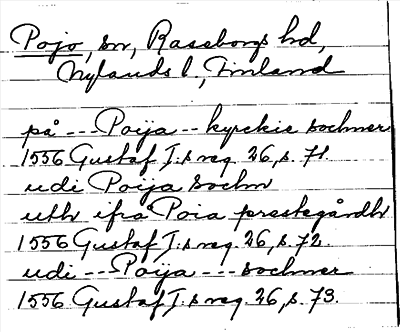 Pojo, sn, Raseborgs hd,
Nylands l., Finland
på --- Poija -- kyrckie sochner
1556 Gustaf I:s reg. 26, s. 71.
udi Poija Sochn
uthi ifrå Poia prestegårdh
1556 Gustaf I:s reg. 26, s. 72.
udi --- Poija --- sochner
1556 Gustaf I:s reg. 26, s. 73.